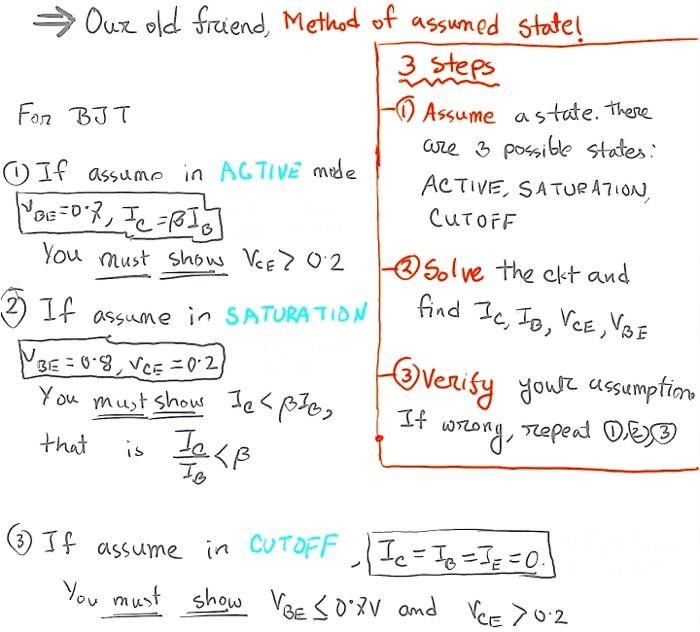 ⇒ Our old friend, Method of assumed state!
For BJT
① If assume in ACTIVE mode
V_BE = 0.7, I_C = βI_B
You must show V_CE > 0.2
② If assume in SATURATION
V_BE = 0.8, V_CE = 0.2
You must show I_C < βI_B,
that is I_C/I_B < β
3 Steps
① Assume a state. There
are 3 possible states:
ACTIVE, SATURATION,
CUTOFF
② Solve the ckt and
find I_C, I_B, V_CE, V_BE
③ Verify your assumption.
If wrong, repeat ①,②,③
③ If assume in CUTOFF, I_C = I_B = I_E = 0.
You must show V_BE ≤ 0.7V and V_CE > 0.2